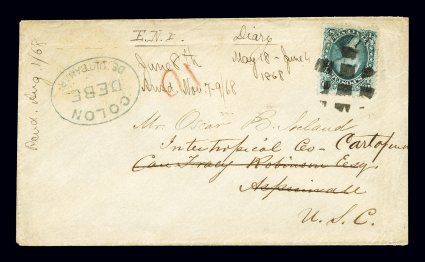 E.N.I. Diary
June 8th May 18 - June 6
1868
Nov 7-9/68
Recd. Aug 1/68
COLON
DEBE
DE ULTRAMAR
10
Mr. Oscar B. Ireland
Intertropical Co - Cartagena
Care Tracy Robinson Esq
Aspinwall
U.S.C.